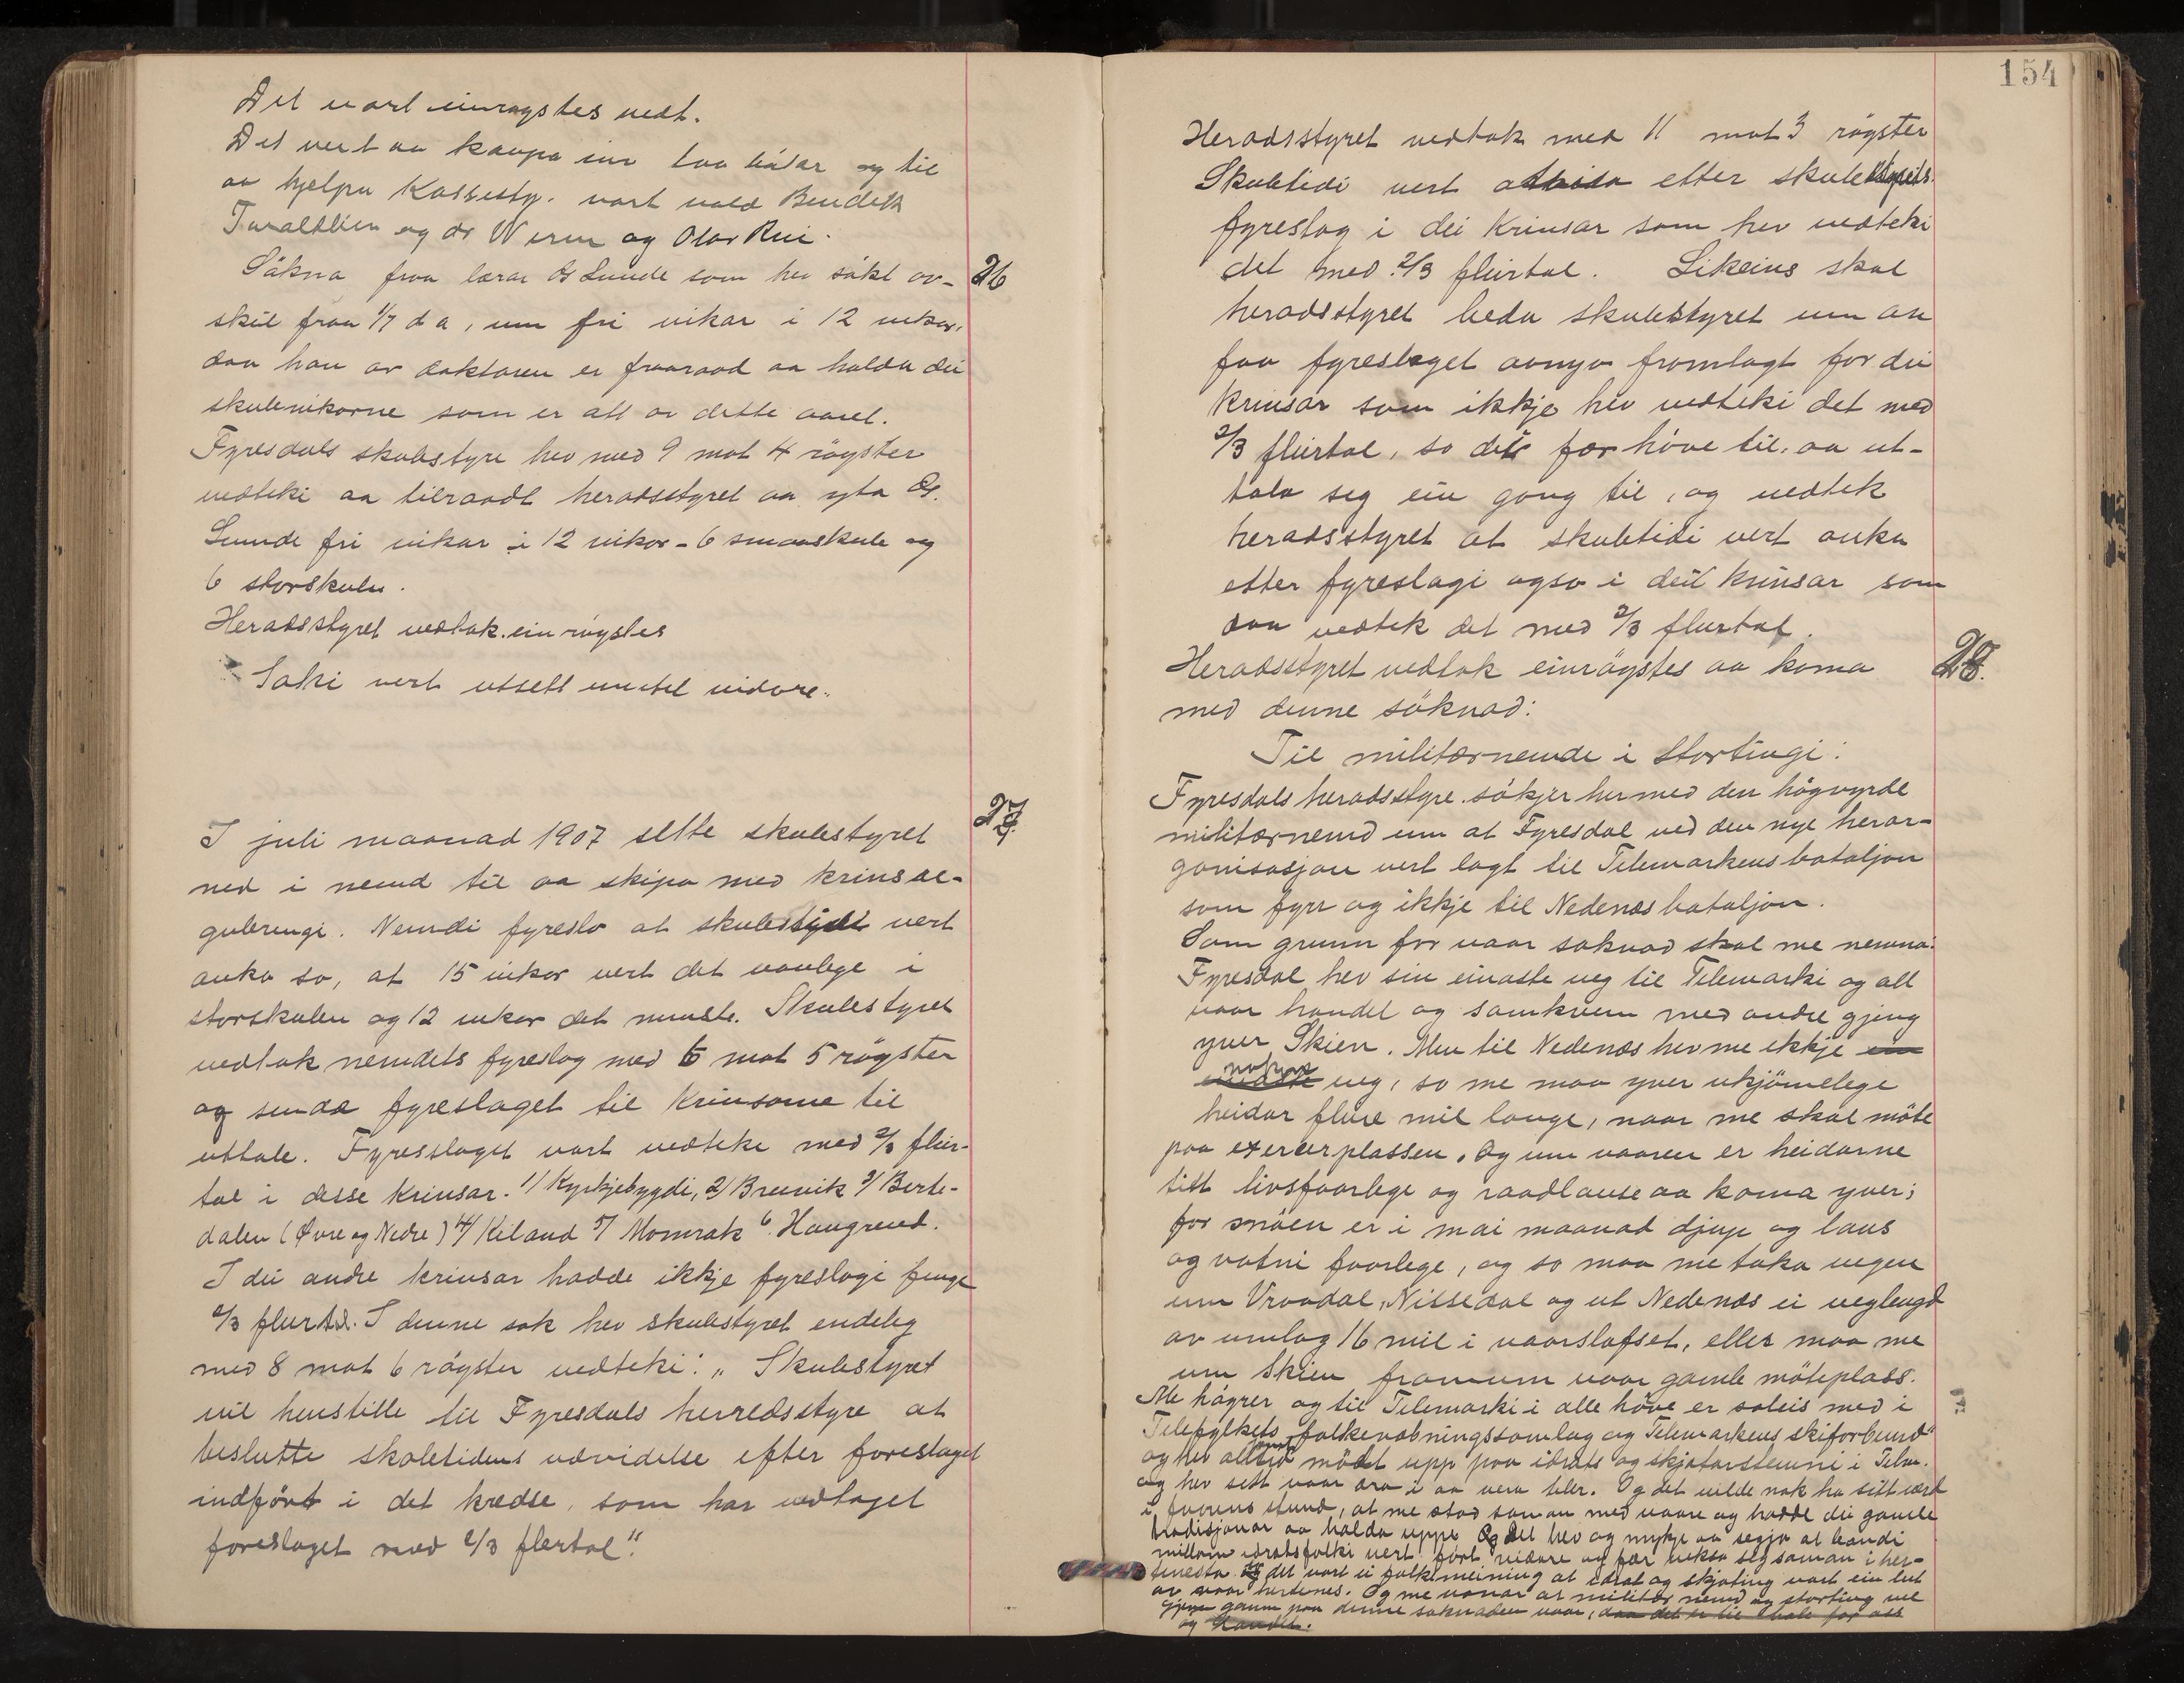 Det vart einrøystes vedt.
Det vert aa kaupa inn tvo båtar og til
aa hjelpa Kassesty. vart vald Bendik
Taraldlien og dr Werm og Olav Rui.
Såkna fraa lærar Os Lunde som hev såkt av-
26
skil fraa 1/7 d a, um fri vikar i 12 vikor,
daa han av doktaren er fraaraad aa halda dei
skulevikorne som er att av dette aaret.
Fyresdals skulestyre hev med 9 mot 4 röyster
vedteki aa tilraadt heradsstyret aa yta Os.
Lunde fri vikar i 12 vikor - 6 smaaskule og
6 storskulen.
Heradsstyret vedtok einröystes
Saki vert utsett inntil vidare.
27
I juli maanad 1907 sette skulestyret
ned i nemd til aa skipa med krinsre-
guleringi. Nemdi fyreslo at skuletidi vert
auka so, at 15 vikor vert det vanlege i
storskulen og 12 vikor det minste. Skulestyret
vedtok nemdets fyreslog med 6 mot 5 röyster
og sende fyreslaget til Krinsarne til
uttale. Fyreslaget vart vedteke med 2/3 fleir-
tal i desse krinsar. 1/ Kyrkjebygdi, 2/ Breivik 3/ Berte-
dalen (Øvre og Nedre) 4/ Kiland 5/ Momrak 6. Haugrend.
I dei andre krinsar hadde ikkje fyreslagi fenge
2/3 flertal. I denne sak hev skulestyret endeleg
med 8 mot 6 röyster vedteki: „Skulestyret
vil henstille til Fyresdals herredsstyre at
beslutte skoletidens udvidelse efter foreslaget
indført i det kredse, som har vedtaget
foreslaget med 2/3 flertal".
154
Heradsstyret vedtok med 11 mot 3 röyster
Skuletidi vert etter skulestyrets
fyreslag i dei Krinsar som hev vedteki
det med 2/3 fleirtal. Likeins skal
heradsstyret beda skulestyret um aa
faa fyreslaget aanyo framlagt for dei
krinsar som ikkje hev vedteki det med
2/3 fleirtal, so dei fær höve til aa ut-
tala seg ein gong til, og vedtek
heradsstyret at skuletidi vert auka
etter fyreslagi ogso i dei krinsar som
daa vedtek det med 2/3 flertal.
Heradsstyret vedtok einröystes aa koma
28.
med denne söknad:
Til militærnemde i Stortingi:
Fyresdals heradsstyre sökjer hermed den högvyrde
militærnemd um at Fyresdal ved den nye heror-
ganisasjon vert lagt til Telemarkens bataljon
som fyrr og ikkje til Nedenæs bataljon.
Som grunn for vaar söknad skal me nemna:
Fyresdal hev sin einaste veg til Telemarki og all
vaar handel og samkvem med andre gjeng
yver Skien. Men til Nedenæs hev me ikkje ein
nokon
einaste veg, so me maa yver ukjömelege
heidar fleire mil lange, naar me skal möte
paa exercerplassen. Og um vaaren er heidarne
titt livsfaarlege og raadlause aa koma yver;
for snöen er i mai maanad djup og laus
og vatni faarlege, og so maa me taka vegen
um Vraadal, Nissedal og ut Nedenæs ei veglengd
av umlag 16 mil i vaarslafset, eller maa me
um Skien framum vaar gamle möteplass.
Me högrer og til Telemarki i alle höve er soleis med i
Telefylkets folkevæbningssamlag og Telemarkens skiforbund"
og hev alltid mödt upp paa idrots og skjotarstemne i Telem.
og hev sett vaar æra i aa vera teler. Og det vilde nok ha sitt værd
i faarens stund, at me stod saman med vaare og hadde dei gamle
tradisjonar aa halda uppe. Og det hev og mykje aa segja at bandi
millom idrotsfolki vert fört vidare og fær veksa seg saman i her-
tenesta og det vart ei folkemeining at idrot og skjoting vart ein lut
av vaar hertenes. Og me vonar at militær nemd og storting vil
gjeva gaum paa denne söknaden vaar, daa det er til bate for oss
og landet.